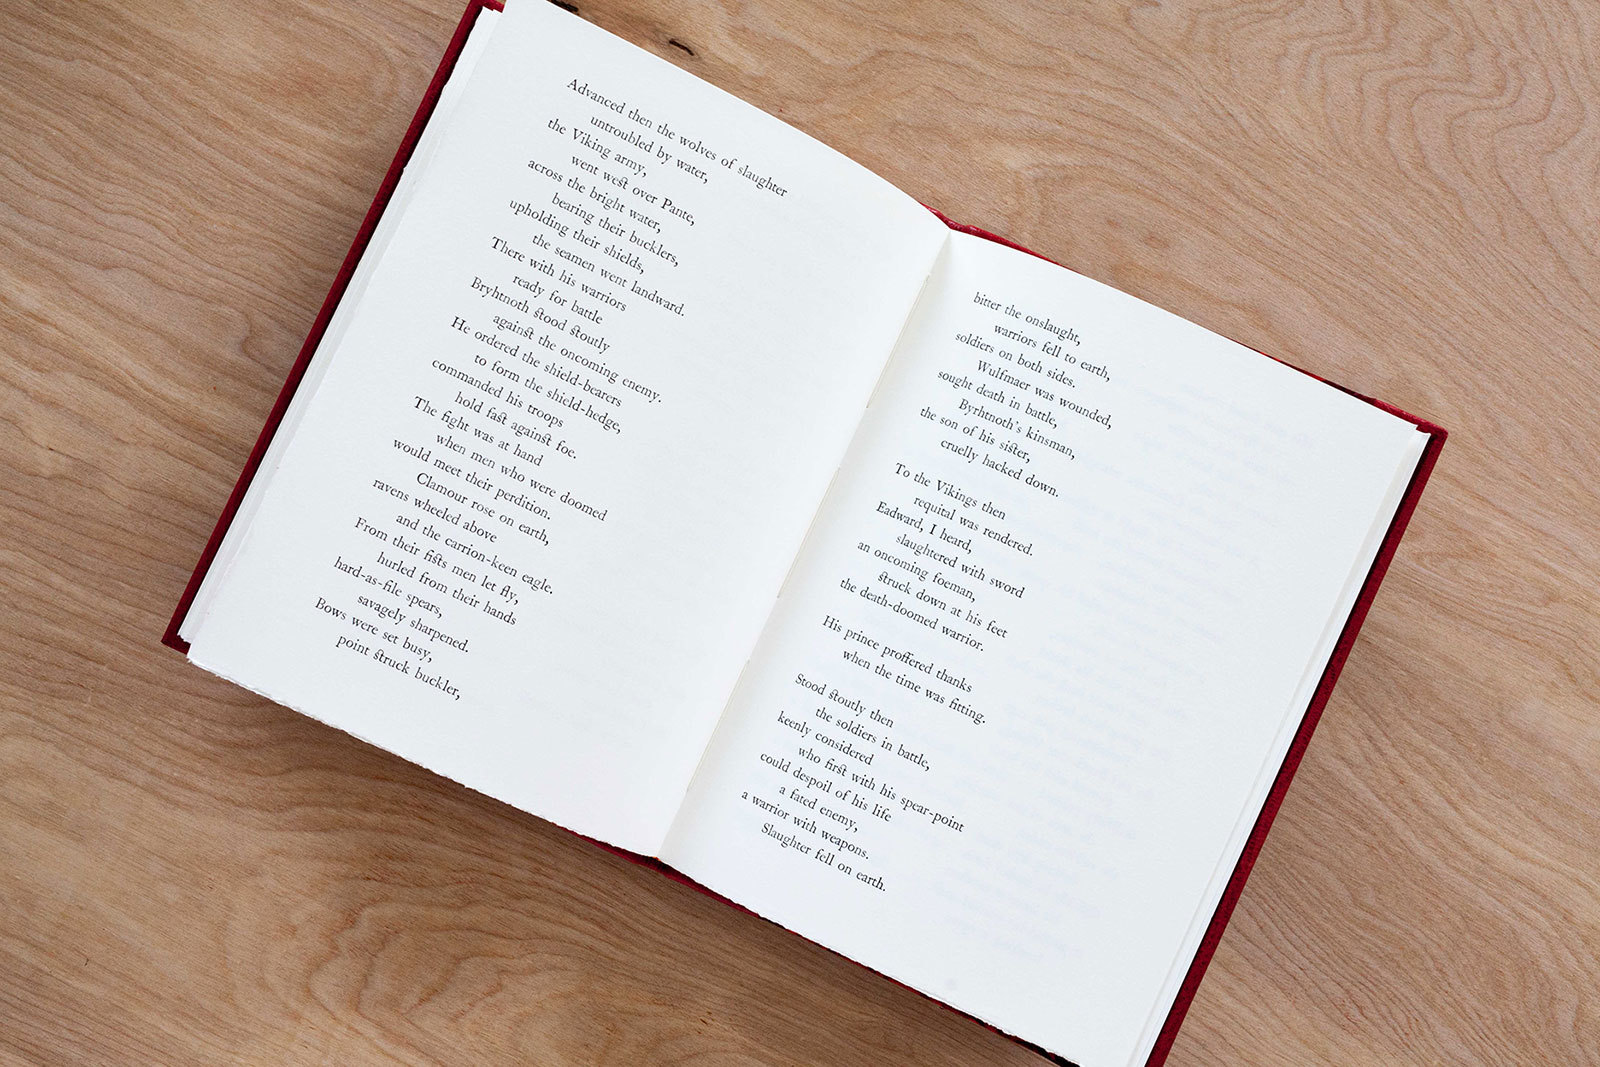 Advanced then the wolves of slaughter
untroubled by water,
the Viking army,
went west over Pante,
across the bright water,
bearing their bucklers,
upholding their shields,
the seamen went landward.
There with his warriors
ready for battle
Bryhtnoth stood stoutly
against the oncoming enemy.
He ordered the shield-bearers
to form the shield-hedge,
commanded his troops
hold fast against foe.
The fight was at hand
when men who were doomed
would meet their perdition.
Clamour rose on earth,
ravens wheeled above
and the carrion-keen eagle.
From their fists men let fly,
hurled from their hands
hard-as-file spears,
savagely sharpened.
Bows were set busy,
point struck buckler,
bitter the onslaught,
warriors fell to earth,
soldiers on both sides.
Wulfmaer was wounded,
sought death in battle,
Byrhtnoth's kinsman,
the son of his sister,
cruelly hacked down.
To the Vikings then
requital was rendered.
Eadward, I heard,
slaughtered with sword
an oncoming foeman,
struck down at his feet
the death-doomed warrior.
His prince proffered thanks
when the time was fitting.
Stood stoutly then
the soldiers in battle,
keenly considered
who first with his spear-point
could despoil of his life
a fated enemy,
a warrior with weapons.
Slaughter fell on earth.